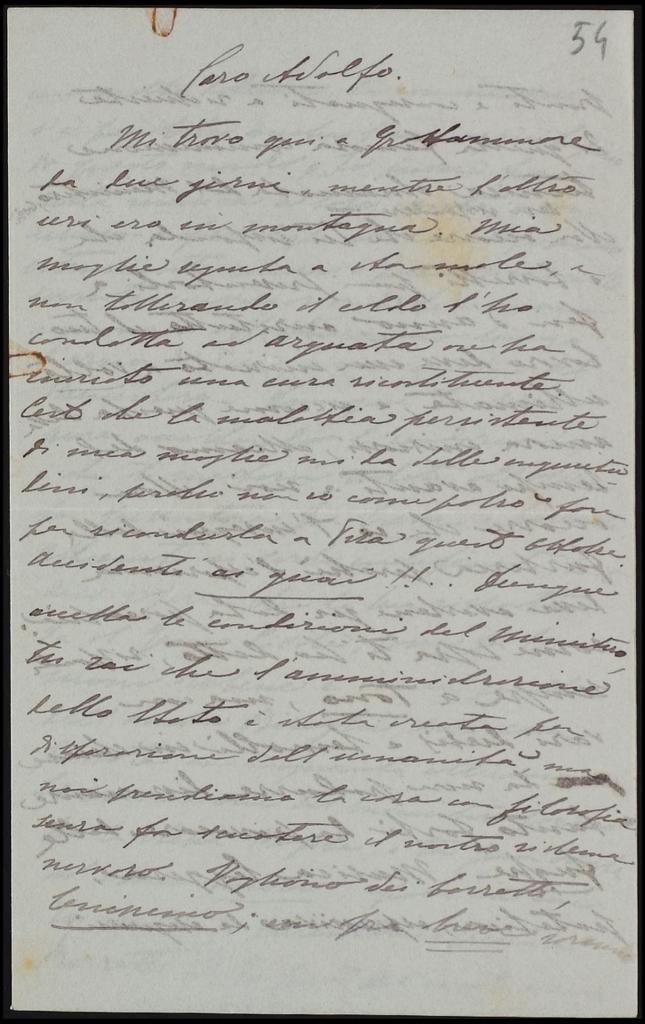 54
Caro Adolfo.
Mi trovo qui a Grottammare
da due giorni, mentre l'altro
ieri ero in montagna. Mia
moglie venuta a star male, e
non tollerando il caldo l'ho
condotta ad Arquata ove ha
iniziato una cura ricostituente.
Certo che la malattia persistente
di mia moglie mi da delle inquietu-
dini, perché non so come potrò fare
per ricondurla a Pisa quest'ottobre.
Accidenti ai guai!!.. Dunque
accetta le condizioni del Ministero,
tu sai che l'amministrazione
dello Stato è stata creata per
disperazione dell'umanità ma
noi prendiamo la cosa con filosofia
senza far scuotere il nostro sistema
nervoso. Vogliono dei borretti
benissimo; breve